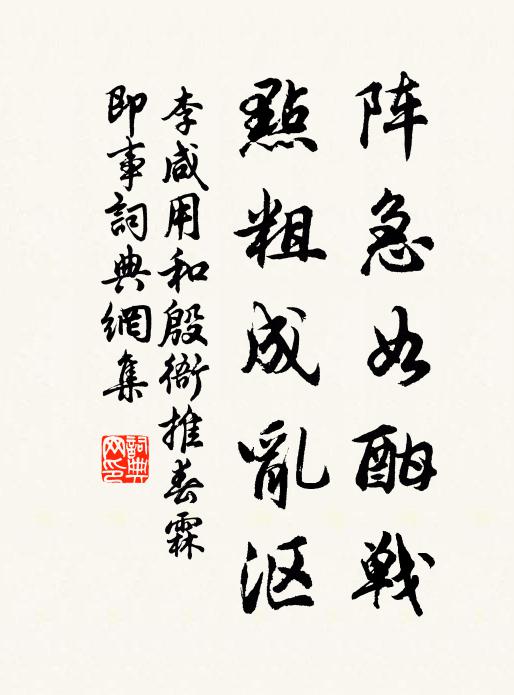 阵急如酣战
點粗成亂沤
李咸用和殷衙推春霖
即事詞典網集
詞典
网印